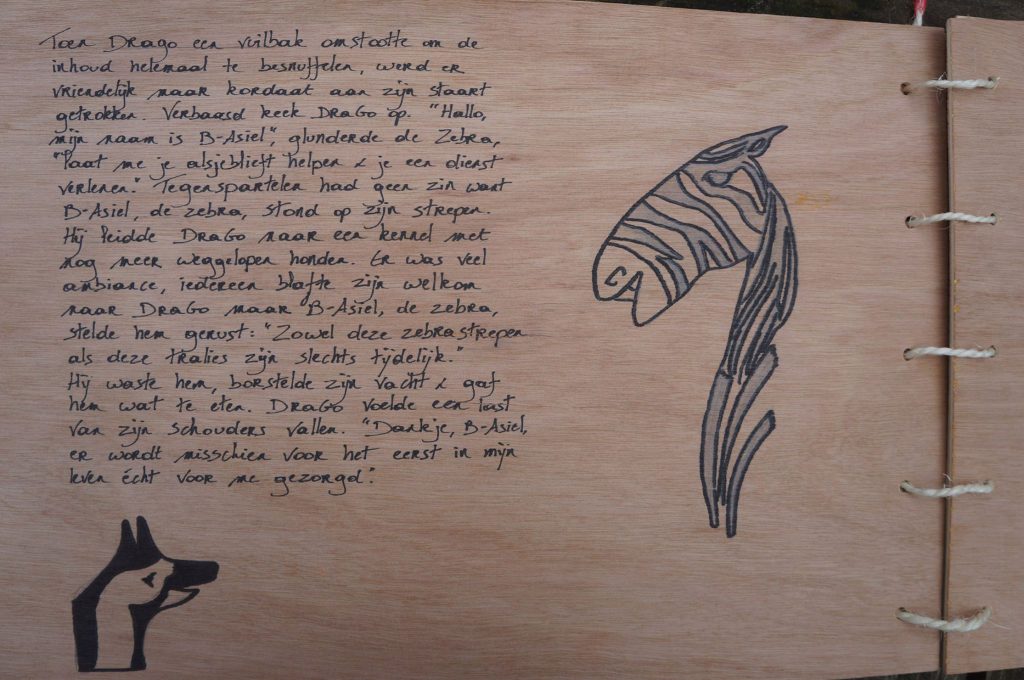 Toen Drago een vuilbak omstootte om de
inhoud helemaal te besnuffelen, werd er
vriendelijk maar kordaat aan zijn staart
getrokken. Verbaasd keek DRAGO op. "Hallo,
mijn naam is B-Asiel", glunderde de Zebra,
"Laat me je alsjeblieft helpen & je een dienst
verlenen." Tegenspartelen had geen zin want
B-Asiel, de zebra, stond op zijn strepen.
Hij leidde DRAGO naar een kennel met
nog meer weggelopen honden. Er was veel
ambiance, iedereen blafte zijn welkom
naar DRAGO maar B-Asiel, de zebra,
stelde hem gerust: "Zowel deze zebrastrepen
als deze tralies zijn slechts tijdelijk."
Hij waste hem, borstelde zijn vacht & gaf
hem wat te eten. DRAGO voelde een last
van zijn schouders vallen. "Dankje, B-Asiel,
er wordt misschien voor het eerst in mijn
leven écht voor me gezorgd."